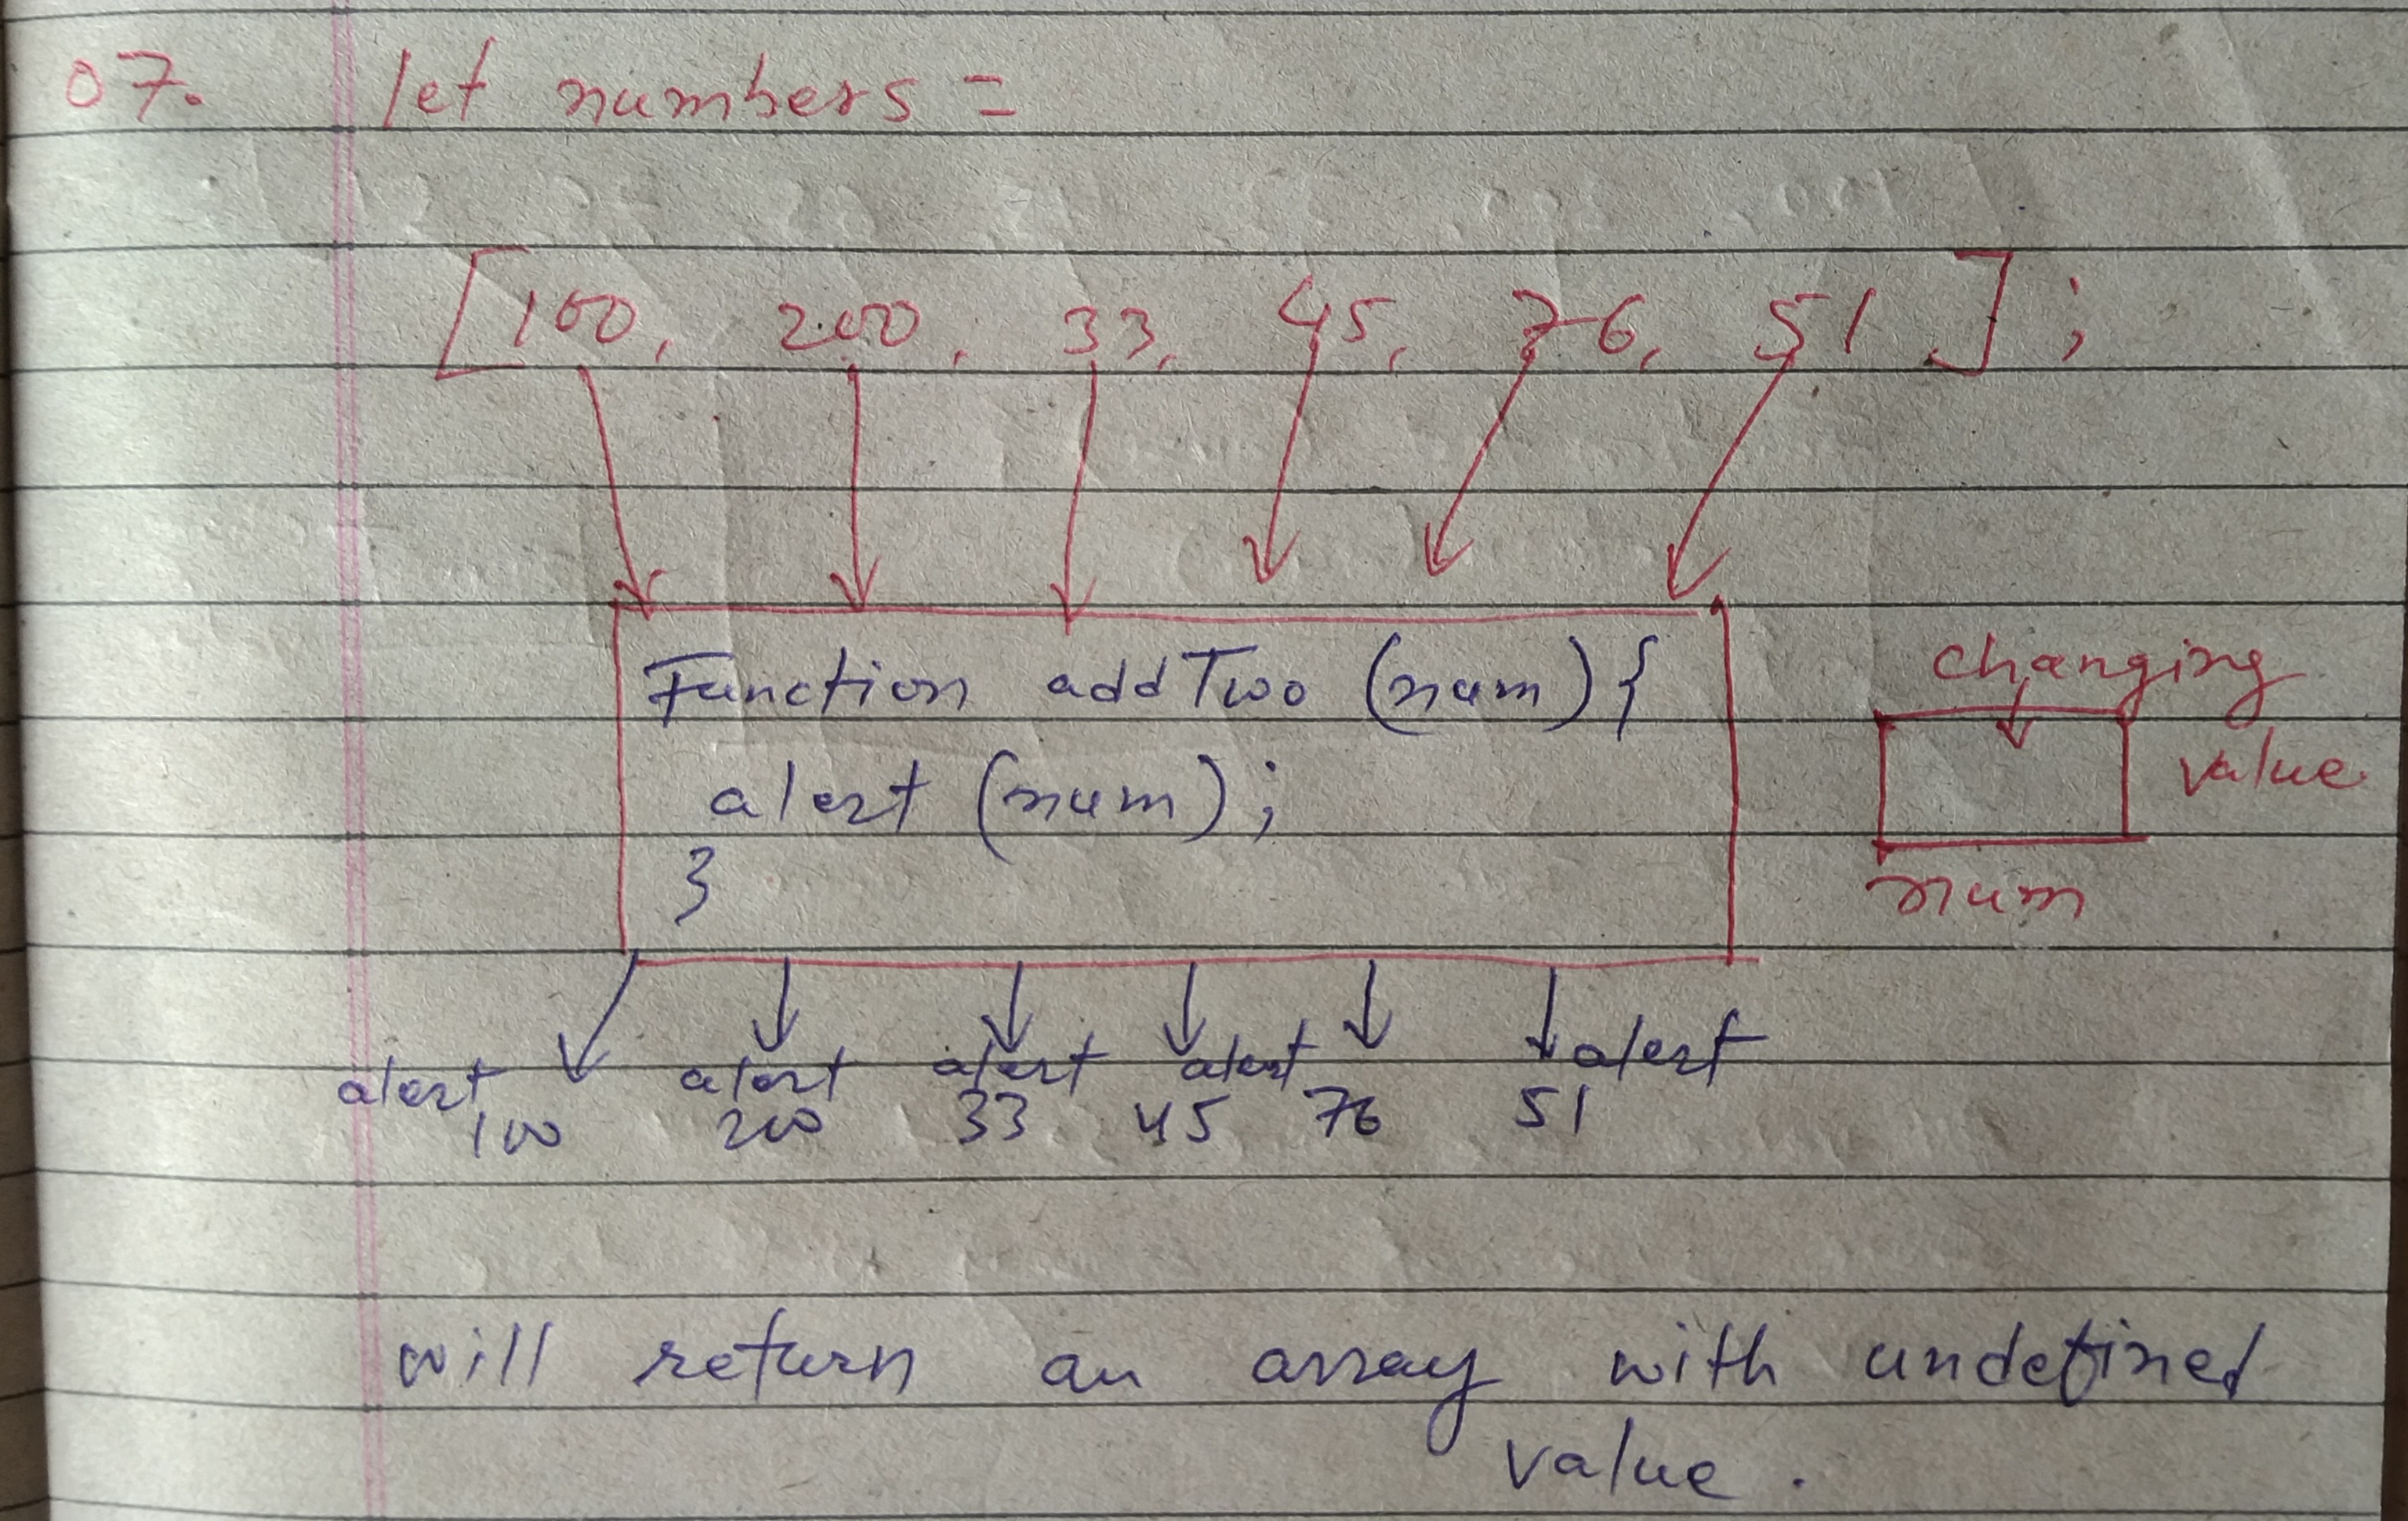 07. let numbers =
[100, 200, 33, 45, 76, 51];
Function addTwo (num) {
alert (num);
}
changing
value
num
alert alert alert alert alert
100 200 33 45 76 51
will return an array with undefined
value.